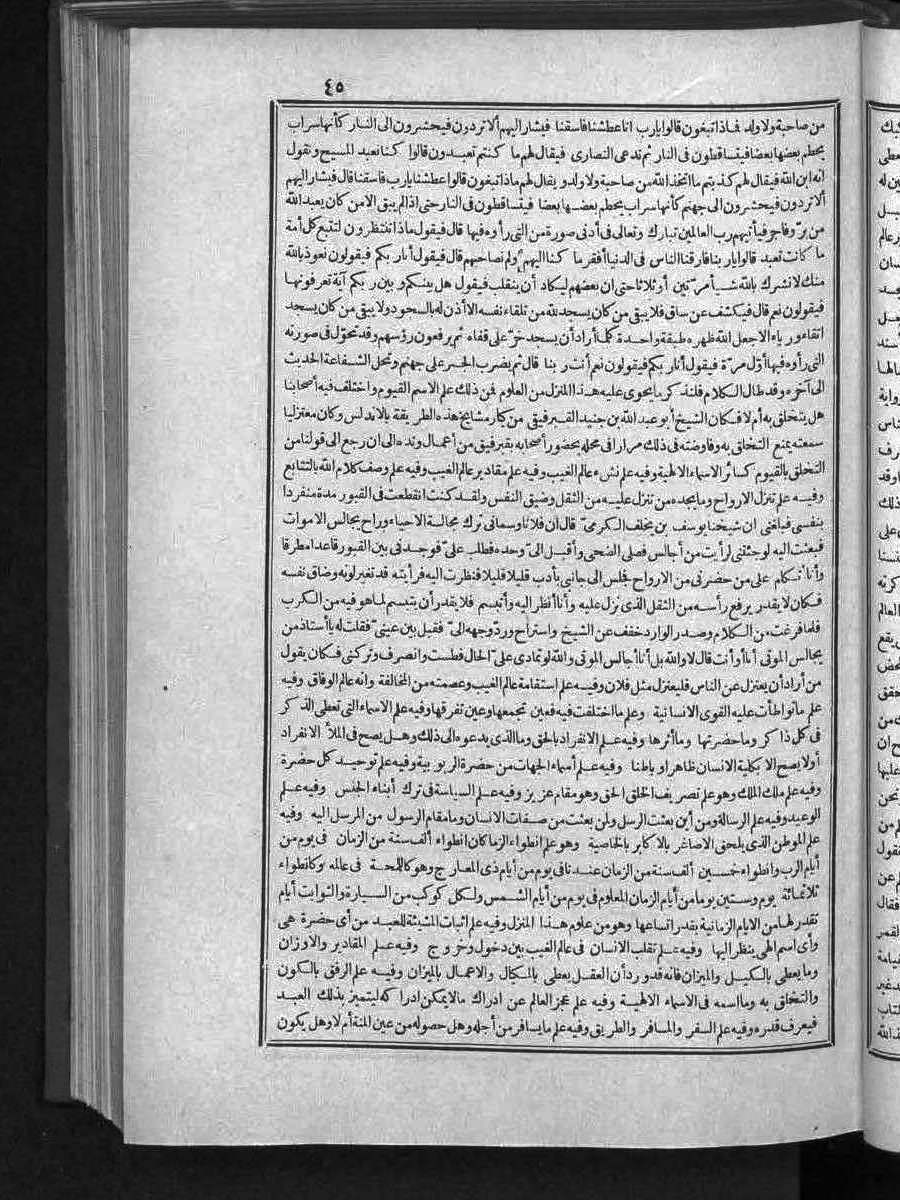 ٤٥
من صاحبة ولا ولد فماذا تبغون قالوا يارب اناعطشنا فاسقنا فيشار اليهم ألا تردون فيحشرون الى النار كأنها سراب
يحطم بعضها بعضا فيتساقطون فى النار ثم تدعى النصارى فيقال لهم ما كنتم تعبدون قالوا كنا نعبد المسيح ونقول
انه ابن الله فيقال لهم كذبتم ما اتخذ الله من صاحبة ولا ولد و يقال لهم ماذا تبغون قالوا عطشنا يارب فاسقنا قال فيشار اليهم
ألا تردون فيحشرون الى جهنم كأنها سراب يحطم بعضها بعضا فيتساقطون فى النار حتى اذا لم يبق الا من كان يعبد الله
من برّ وفاجر فيأتيهم رب العالمين تبارك وتعالى فى أدنى صورة من التى رأوه فيها قال فيقول ماذا تنتظرون لتتبع كل أمة
ما كانت تعبد قالوا يار بنا فارقنا الناس فى الدنيا أفقر ما كنا اليهم ولم نصاحبهم قال فيقول أنار بكم فيقولون نعوذ بالله
منك لا نشرك بالله شيأ مرّتين أو ثلاثا حتى ان بعضهم ليكاد أن ينقلب فيقول هل بينكم و بين ر بكم آية تعرفونها
فيقولون نعم قال فيكشف عن ساق فلا يبقى من كان يسجد لله من تلقاء نفسه الا أذن له بالسجود ولا يبقى من كان يسجد
اتقاء ور ياء الا جعل الله ظهره طبقة واحدة كلما أراد أن يسجد خرّ على قفاه ثم يرفعون رؤسهم وقد تحوّل فى صورته
التى رأوه فيها أوّل مرّة فيقول أنار بكم فيقولون نعم أنت ر بنا قال ثم يضرب الجسر على جهنم وتحل الشفاعة الحديث
الى آخره وقد طال الكلام فلنذكر ما يحوى عليه هذا المنزل من العلوم فمن ذلك علم الاسم القيوم واختلف فيه أصحابنا
هل يتخلق به أم لا فكان الشيخ أبو عبد الله بن جنيد القبرفيقى من كبار مشايخ هذه الطريقة بالاندلس وكان معتزليا
سمعته يمنع التخلق به وفاوضته فى ذلك مرارا فى محله بحضور أصحابه بقبرفيق من أعمال رنده الى ان رجع الى قولنا من
التخلق بالقيوم كسائر الاسماء الالهية وفيه علم نشء عالم الغيب وفيه علم مقادير عالم الغيب وفيه علم وصف كلام الله بالتتابع
وفيه علم تنزل الارواح وما يجده من تنزل عليه من الثقل وضيق النفس ولقد كنت انقطعت فى القبور مدة منفردا
بنفسى فبلغنى ان شيخنا يوسف بن يخلف الكرمىّ قال ان فلانا وسمانى ترك مجالسة الاحياء وراح يجالس الاموات
فبعثت اليه لو جئتنى لرأيت من أجالس فصلى الضحى وأقبل الىّ وحده فطلب علىّ فوجدنى بين القبور قاعدا مطرقا
وأنا أتكلم على من حضرنى من الارواح فجلس الى جانبى بأدب قليلا قليلا فنظرت اليه فرأيته قد تغير لونه وضاق نفسه
فكان لا يقدر يرفع رأسه من الثقل الذى نزل عليه وأنا أنظر اليه وأتبسم فلا يقدر أن يتبسم لما هو فيه من الكرب
فلما فرغت من الكلام وصدر الوارد خفف عن الشيخ واستراح وردّ وجهه الىّ فقبل بين عينىّ فقلت له يا أستاذ من
يجالس الموتى أنا أو أنت قال لا والله بل أنا أجالس الموتى والله لو تمادى علىّ الحال فطست وانصرف وتركنى فكان يقول
من أراد أن يعتزل عن الناس فليعتزل مثل فلان وفيه علم استقامة عالم الغيب وعصمته من المخالفة وانه عالم الوفاق وفيه
علم ما تواطأت عليه القوى الانسانية وعلم ما اختلفت فيه فعين تجمعها وعين تفرقها وفيه علم الاسماء التى تعطى الذكر
فى كل ذاكر وما حضرتها وما أثرها وفيه علم الانفراد بالحق وما الذى يدعوه الى ذلك وهل يصح فى الملأ الانفراد
أولا يصح الا بكلية الانسان ظاهرا و باطنا وفيه علم أسماء الجهات من حضرة الر بو بية وفيه علم توحيد كل حضرة
وفيه علم ملك الملك وهو علم تصريف الخلق الحق وهو مقام عزيز وفيه علم السياسة فى ترك أبناء الجنس وفيه علم
الوعيد وفيه علم الرسالة ومن أين بعثت الرسل ولمن بعثت من صفات الانسان وما مقام الرسول من المرسل اليه وفيه
علم الموطن الذى يلحق الاصاغر بالاكابر بالخاصية وهو علم انطواء الزمان كانطواء ألف سنة من الزمان فى يوم من
أيام الرب وانطواء خمسين ألف سنة من الزمان عندنا فى يوم من أيام ذى المعارج وهو كاللمحة فى عالمه وكانطواء
ثلاثمائة يوم وستين يوما من أيام الزمان المعلوم فى يوم من أيام الشمس ولكل كوكب من السيارة والثوابت أيام
تقدر لها من الايام الزمانية بقدر اتساعها وهو من علوم هذا المنزل وفيه علم اثبات المشيئة للعبد من أى حضرة هى
وأى اسم الهى ينظر اليها وفيه علم تقلب الانسان فى عالم الغيب بين دخول وخروج وفيه علم المقادير والاوزان
وما يعطى بالكيل والميزان فانه قد ورد أن العقل يعطى بالمكيال والاعمال بالميزان وفيه علم الرفق بالكون
والتخلق به وما اسمه فى الاسماء الالهية وفيه علم عجز العالم عن ادراك ما لا يمكن ادراكه ليتميز بذلك العبد
فيعرف قدره وفيه علم السفر والمسافر والطريق وفيه علم ما يسافر من أجله وهل حصوله من عين المنة أم لا وهل يكون